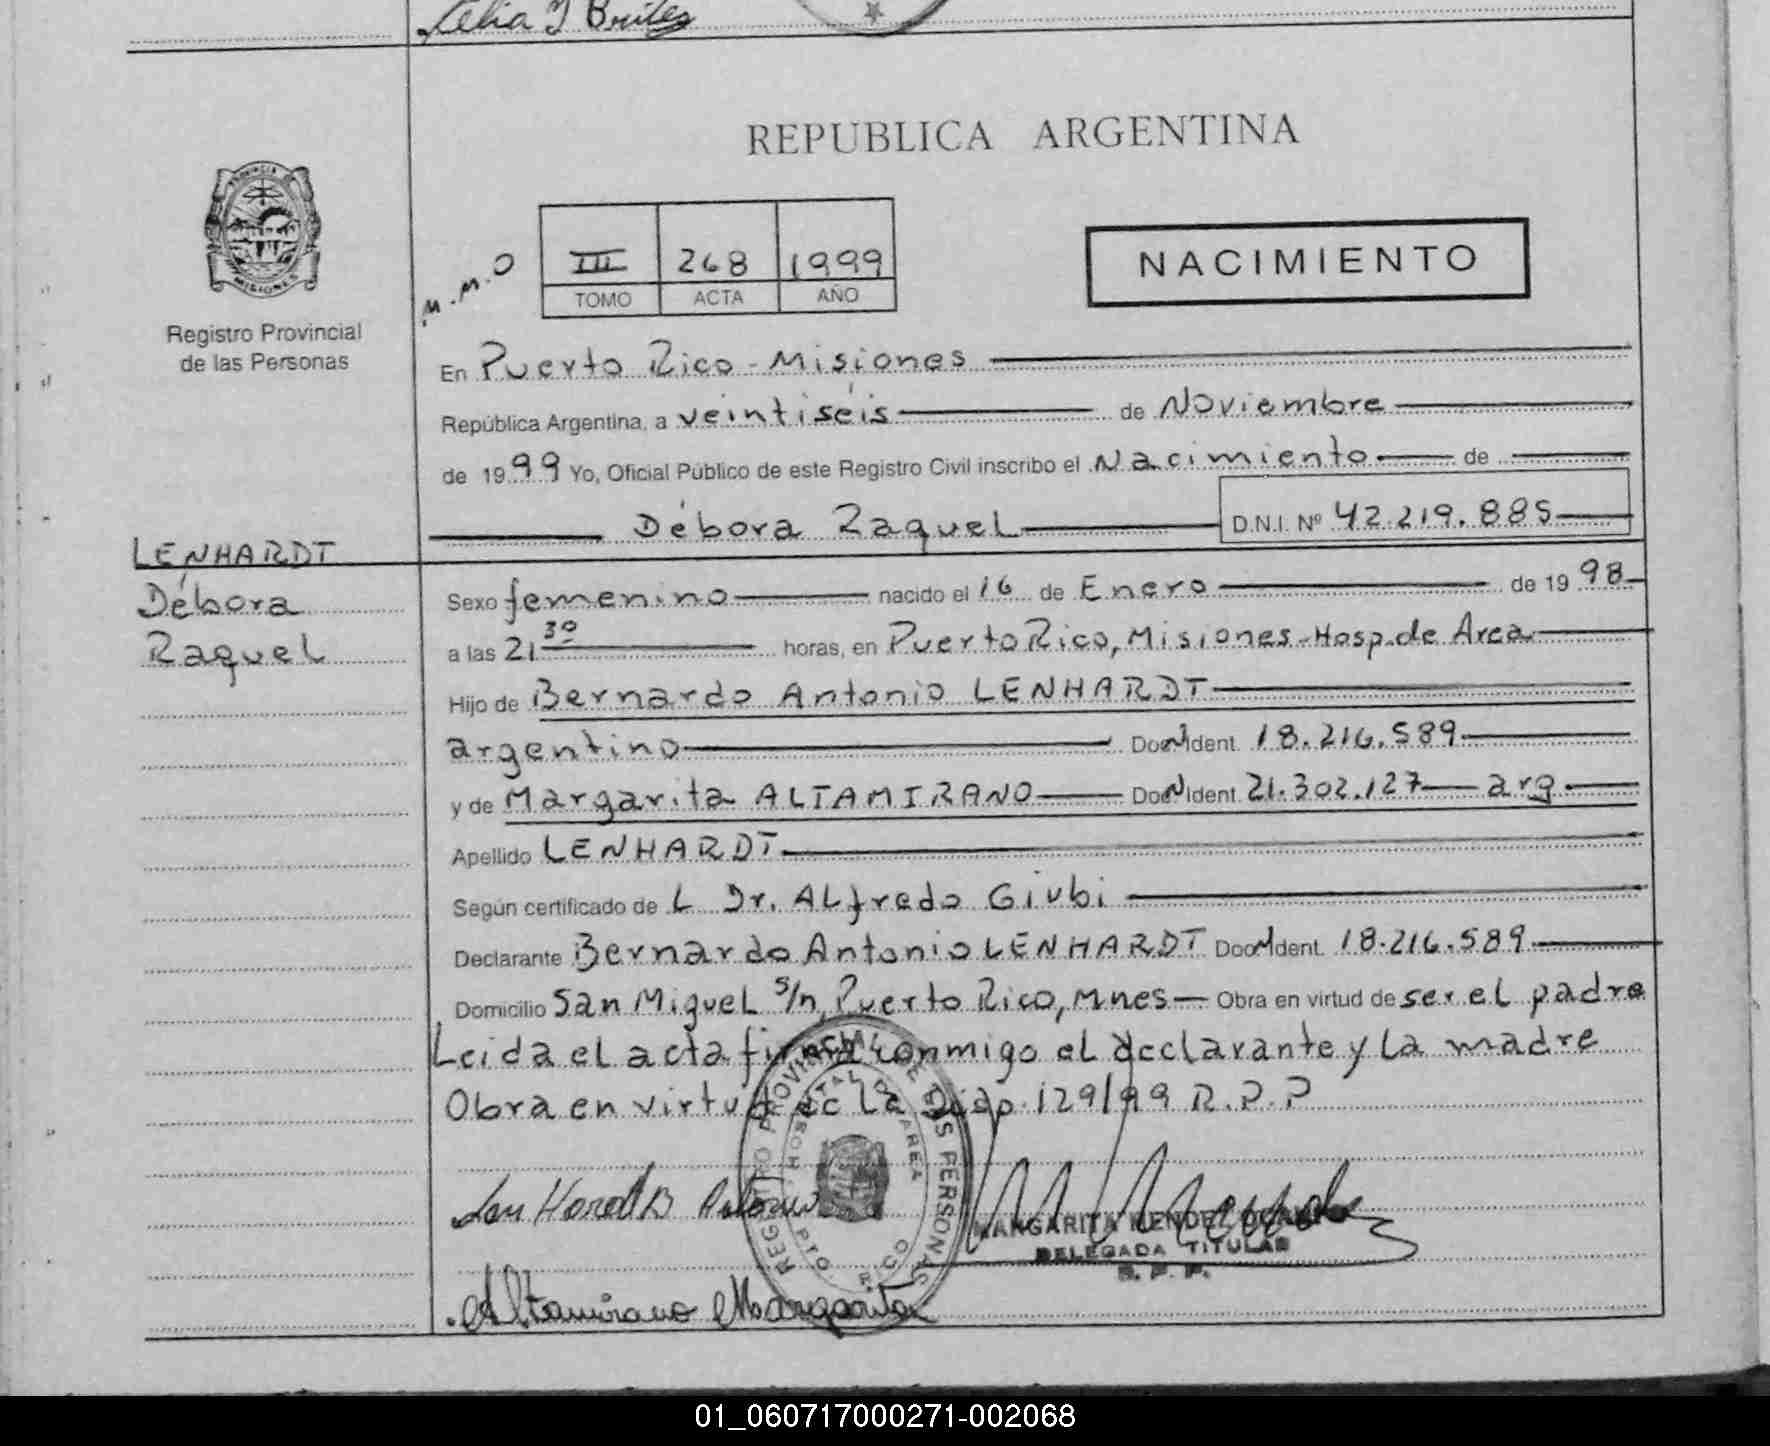 Celia J Britez
REPUBLICA ARGENTINA
PROVINCIA DE
MISIONES
Registro Provincial
de las Personas
M.M.O
III 268 1999
TOMO ACTA AÑO
NACIMIENTO
En Puerto Rico - Misiones
República Argentina, a veintiséis de Noviembre
de 1999 Yo, Oficial Público de este Registro Civil inscribo el Nacimiento de
Débora Raquel D.N.I. Nº 42.219.885
LENHARDT
Débora
Raquel
Sexo femenino nacido el 16 de Enero de 1998
a las 21 30 horas, en Puerto Rico, Misiones-Hosp. de Area
Hijo de Bernardo Antonio LENHARDT
argentino Doc. Ident. 18.216.589
y de Margarita ALTAMIRANO Doc. Ident. 21.302.127 arg
Apellido LENHARDT
Según certificado de L Dr. ALfredo Giubi
Declarante Bernardo Antonio LENHARDT Doc. Ident. 18.216.589
Domicilio San MigueL s/n, Puerto Rico, Mnes Obra en virtud de ser eL padre
Leida el acta firma conmigo el declarante y La madre
Obra en virtud de La Disp. 129/99 R.P.P
REGISTRO PROVINCIAL DE LAS PERSONAS
HOSPITAL DE AREA
PTO. RICO
MARGARITA
DELEGADA TITULAR
R. P. P.
Altamirano Margarita
01_060717000271-002068